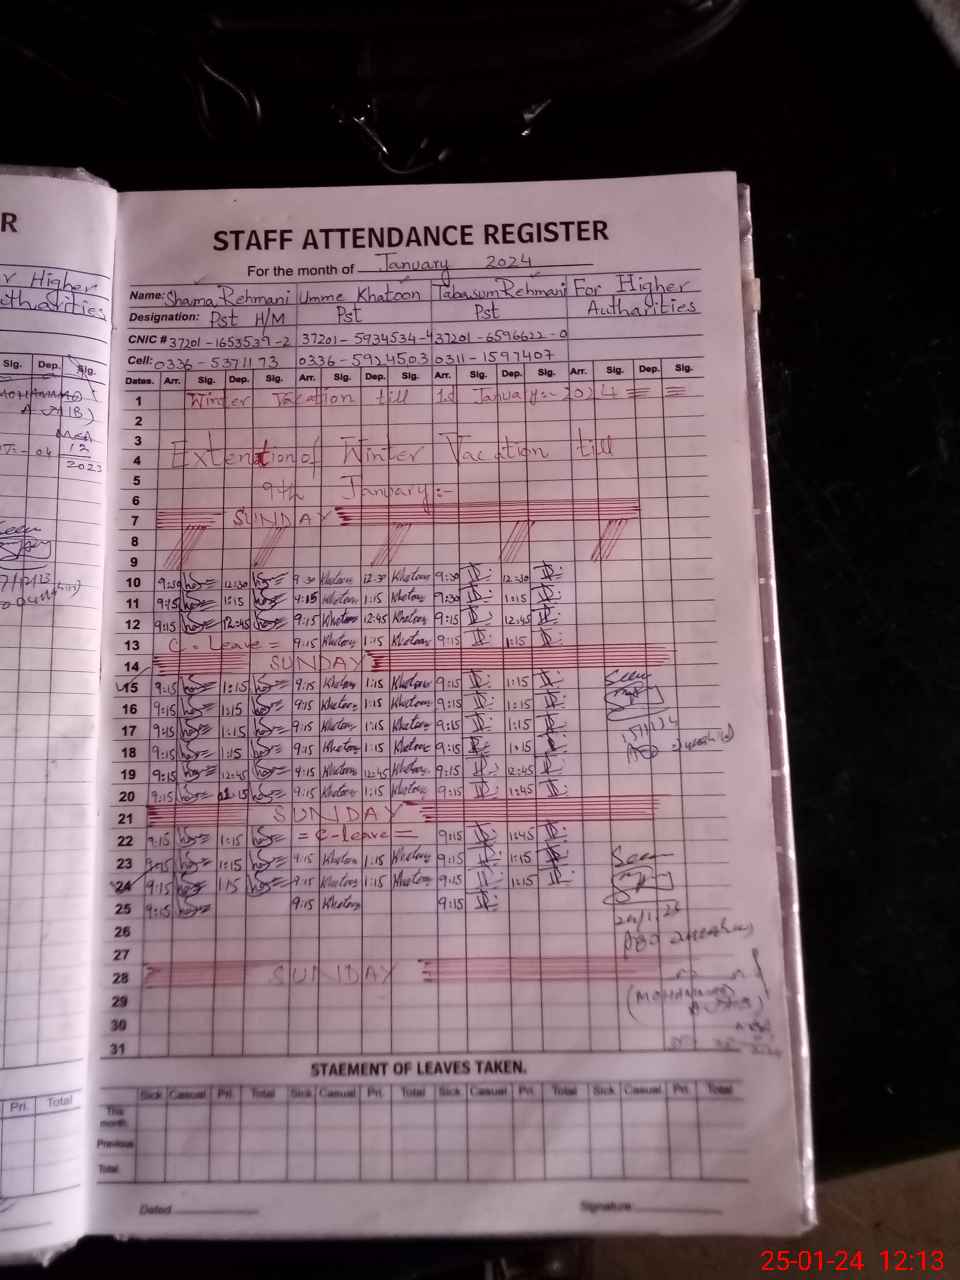 R
r Higher
Autharities
Sig. Dep. Sig.
STAFF ATTENDANCE REGISTER
For the month of January 2024
Name: Shama Rehmani Umme Khatoon Tabasum Rehmani For Higher
Designation: Pst H/M Pst Pst Autharities
CNIC # 37201-1653539-2 37201-5934534-4 37201-6596622-0
Cell: 0336-5371173 0336-5924503 0311-1597407
Dates. Arr. Sig. Dep. Sig. Arr. Sig. Dep. Sig. Arr. Sig. Dep. Sig. Arr. Sig. Dep. Sig.
1 Winter Vacation till 1st January:- 2024
2
3
4 Extention of Winter Vacation till
5
6 9th January:-
7 SUNDAY
8
9
10 9:30 12:30 9:30 Khatoon 12:30 Khatoon 9:30 12:30
11 9:15 1:15 9:15 Khatoon 1:15 Khatoon 9:30 1:15
12 9:15 12:45 9:15 Khatoon 12:45 Khatoon 9:15 12:45
13 C. leave = 9:15 Khatoon 1:15 Khatoon 9:15 1:15
14 SUNDAY
15 9:15 1:15 9:15 Khatoon 1:15 Khatoon 9:15 1:15 Seen
16 9:15 1:15 9:15 Khatoon 1:15 Khatoon 9:15 1:15
17 9:15 1:15 9:15 Khatoon 1:15 Khatoon 9:15 1:15
18 9:15 1:15 9:15 Khatoon 1:15 Khatoon 9:15 1:15
19 9:15 12:45 9:15 Khatoon 12:45 Khatoon 9:15 12:45
20 9:15 1:15 9:15 Khatoon 1:15 Khatoon 9:15 1:45
21 SUNDAY
22 9:15 1:15 = C-leave = 9:15 1:45
23 9:15 1:15 9:15 Khatoon 1:15 Khatoon 9:15 1:15 Seen
24 9:15 1:15 9:15 Khatoon 1:15 Khatoon 9:15 1:15
25 9:15 9:15 Khatoon 9:15
26
27
28 SUNDAY
29 (MOHAMMAD
30
31
STAEMENT OF LEAVES TAKEN.
Sick Casual Pri. Total Sick Casual Pri. Total Sick Casual Pri. Total Sick Casual Pri. Total
This month.
Previous
Total.
Pri. Total
Dated Signature:
25-01-24 12:13